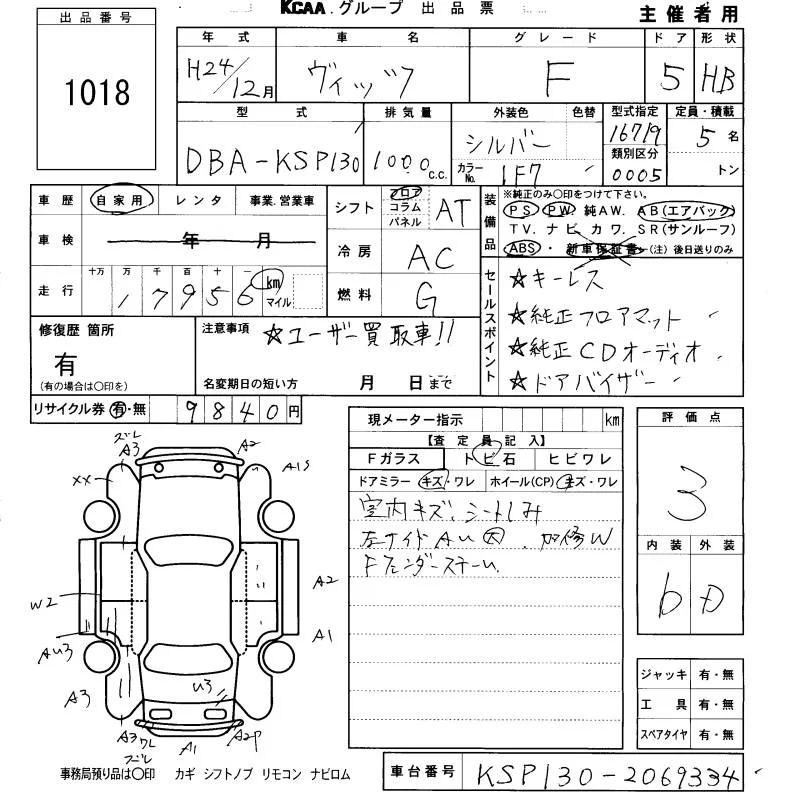 KCAA.グループ 出品票
主催者用
出品番号
1018
年式 車名 グレード ドア 形状
H24/12月 ヴィッツ F 5 HB
型式 排気量 外装色 色替 型式指定 定員・積載
DBA-KSP130 1000c.c. シルバー 16719 5名
カラーNo. 1F7 類別区分 0005 トン
車歴 自家用 レンタ 事業.営業車
車検 年 月
走行 十万 万 千 百 十 一
17956 km マイル
シフト フロア コラム パネル AT
冷房 AC
燃料 G
装備品
※純正のみ○印をつけて下さい。
PS PW. 純AW. AB(エアバック)
TV. ナビ カワ. SR(サンルーフ)
ABS・新車保証書(注)後日送りのみ
セールスポイント
☆キーレス
☆純正フロアマット
☆純正CDオーディオ
☆ドアバイザー
修復歴 箇所
有
(有の場合は○印を)
注意事項 ☆ユーザー買取車!!
名変期日の短い方 月 日まで
リサイクル券 有・無 9840円
現メーター指示 km
【査定員記入】
Fガラス トビ石 ヒビワレ
ドアミラー キズ・ワレ ホイール(CP) キズ・ワレ
室内キズ、シートしみ
左サイドAU大、加修W
Fフェンダーステー
評価点
3
内装 外装
b D
ジャッキ 有・無
工具 有・無
スペアタイヤ 有・無
ズレ
A3
A2
XX
A1S
A2
W2
A1
AU3
U3
A3
A3
ワレ
ズレ
A1
A2P
事務局預り品は○印 カギ シフトノブ リモコン ナビロム
車台番号 KSP130-2069334